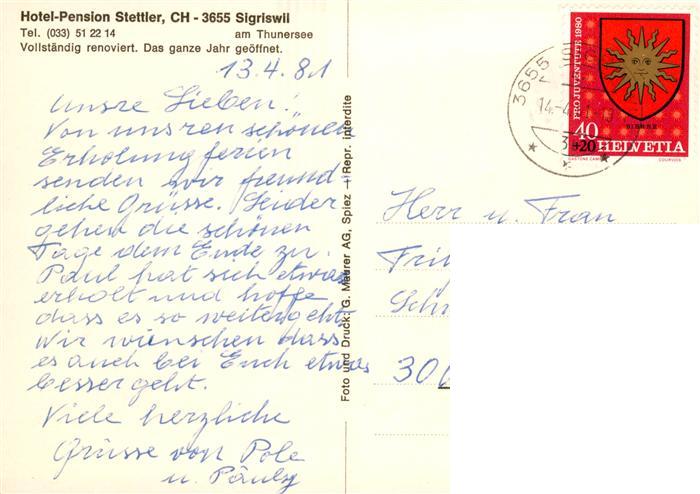 Hotel-Pension Stettler, CH - 3655 Sigriswil
Tel. (033) 51 22 14 am Thunersee
Vollständig renoviert. Das ganze Jahr geöffnet.
13.4.81
Unsre Lieben!
Von unsren schönen
Erholungsferien
senden wir freund-
liche Grüsse. Leider
gehen die schönen
Tage dem Ende zu.
Paul hat sich etwas
erholt und hoffe
dass es so weitergeht
Wir wünschen dass
es auch bei Euch etwas
besser geht.
Viele herzliche
Grüsse von Pole
u. Pauly
Foto und Druck: G. Maurer AG, Spiez - Repr. interdite
3655
14.-4.
PRO JUVENTUTE 1980
40
+20
HELVETIA
COURVOISI
Herr u. Frau
300